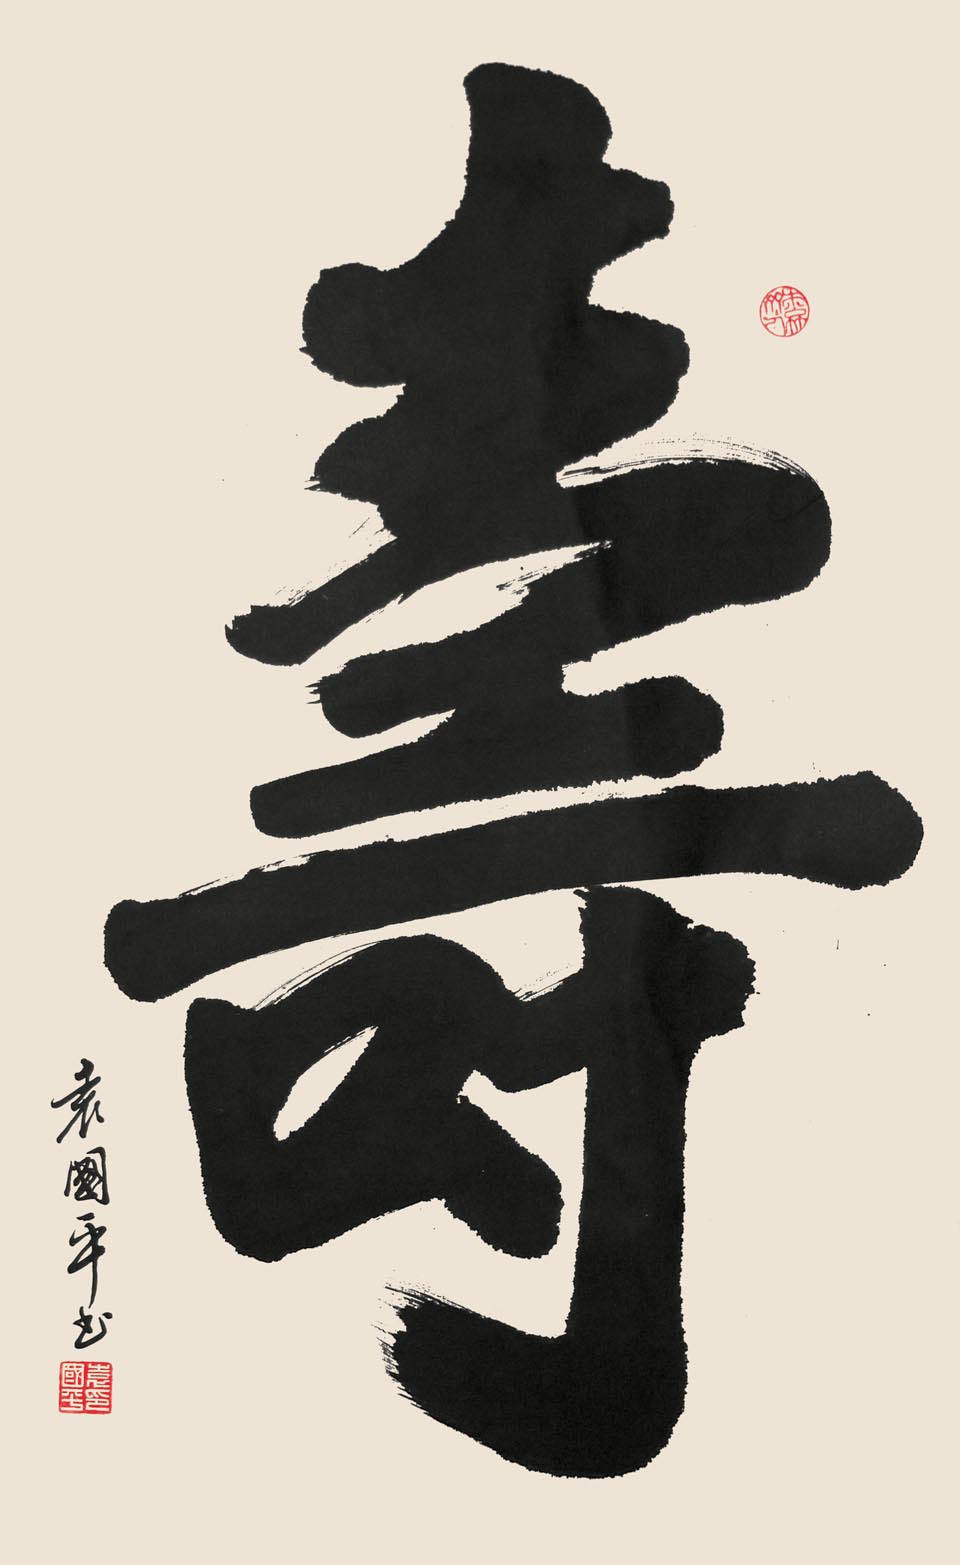 壽
袁國平书
袁國平印